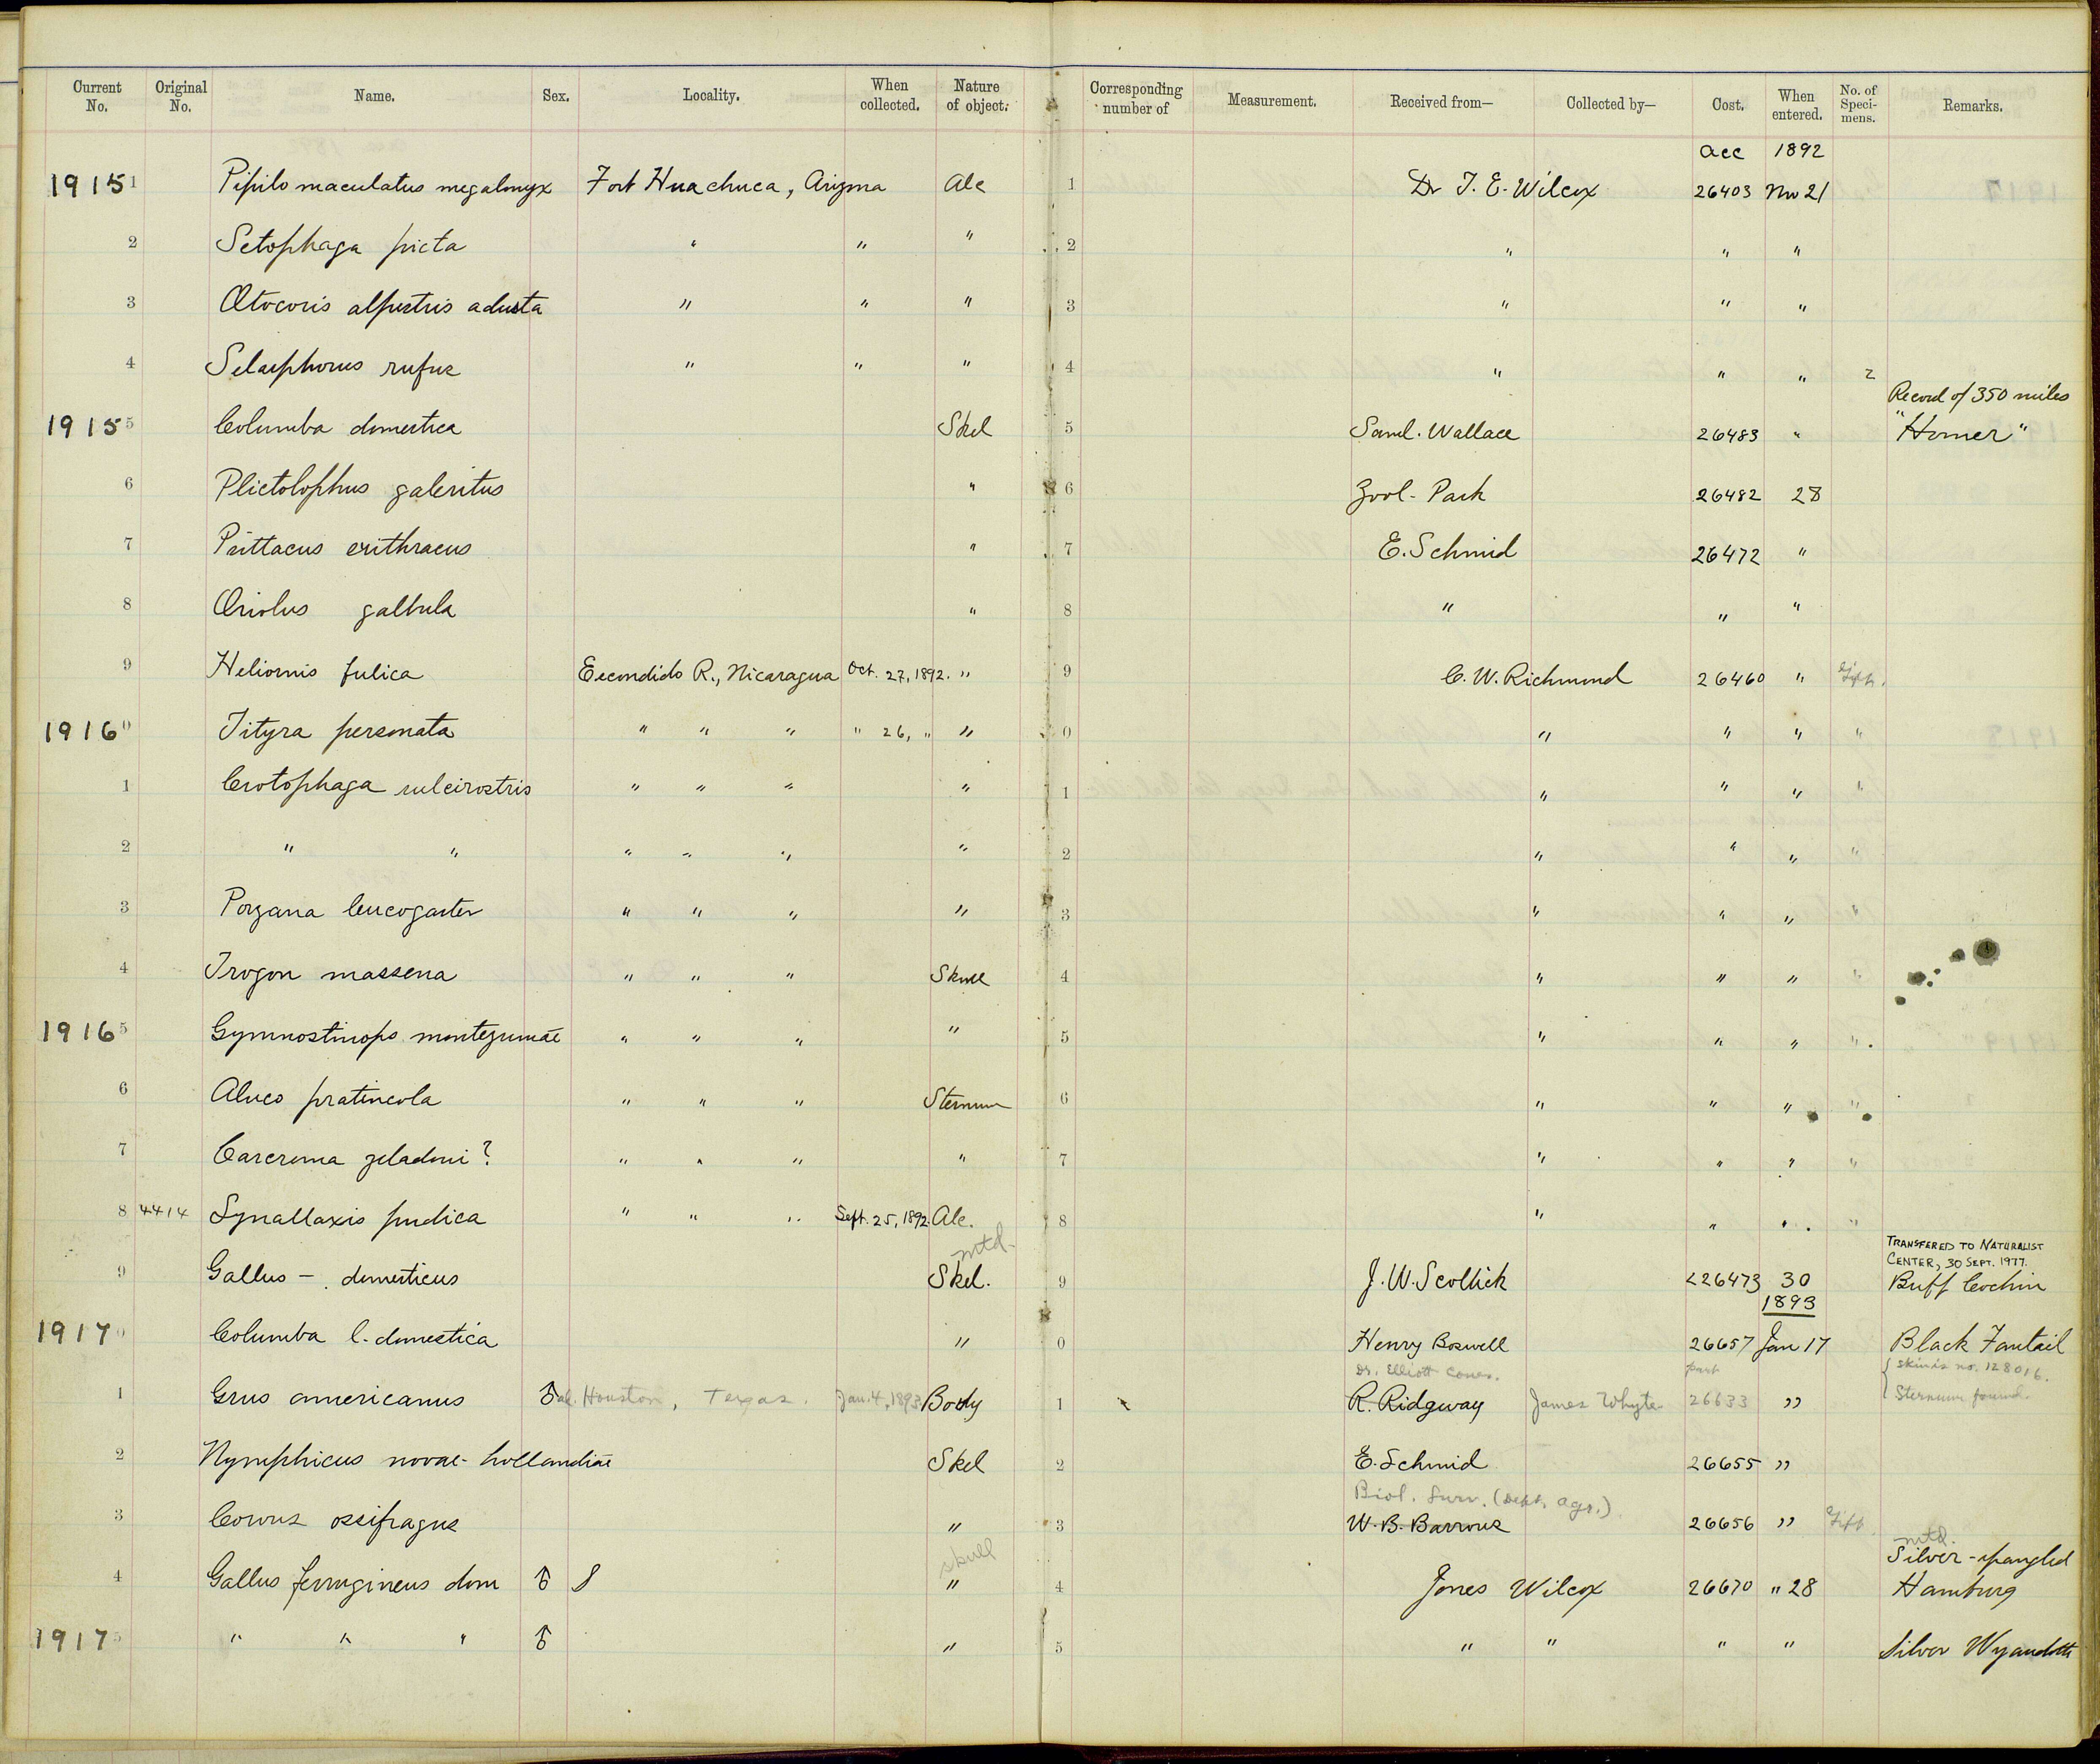 Current No. Original No. Name. Sex. Locality. When collected. Nature of object. Corresponding number of Measurement. Received from— Collected by— Cost. When entered. No. of Speci-mens. Remarks.
acc 1892
19151 Pipilo maculatus megalonyx Fort Huachuca, Arizona Alc 1 Dr T. E. Wilcox 26403 Nov 21
2 Setophaga picta " " " 2 " " "
3 Otocoris alpestris adusta " " " 3 " " "
4 Selasphorus rufus " " " 4 " " " 2
Record of 350 miles
19155 Columba domestica Skel 5 Saml. Wallace 26483 " "Homer"
6 Plictolophus galeritus " 6 Zool. Park 26482 28
7 Psittacus erithracus " 7 E. Schmid 26472 "
8 Oriolus galbula " 8 " " "
9 Heliornis fulica Escondido R., Nicaragua Oct. 27, 1892. " 9 C. W. Richmond 26460 " Gift.
19160 Tityra personata " " " " 26, " " 0 " " " "
1 Crotophaga sulcirostris " " " " 1 " " " "
2 " " " " " " 2 " " " "
3 Porzana leucogaster " " " " 3 " " " "
4 Trogon massena " " " Skull 4 " " " "
19165 Gymnostinops montezumae " " " " 5 " " " "
6 Aluco pratincola " " " Sternum 6 " " " "
7 Carcroma zeladoni? " " " " 7 " " " "
8 4414 Synallaxis pudica " " " Sept. 25, 1892. Alc. 8 " " " "
mtd. TRANSFERED TO NATURALIST
CENTER, 30 SEPT. 1977.
9 Gallus – domesticus Skel. 9 J. W. Scollick <26473 30 Buff Cochin
1893
19170 Columba l. domestica " 0 Henry Boswell 26657 Jan 17 Black Fantail
Dr. Elliott Coues. part { Skin is no. 128016.
1 Grus americanus ♂ad. Houston, Texas. Jan. 4, 1893 Body 1 R. Ridgway James Whyte 26633 " Sternum found.
2 Nymphicus novae-hollandiae Skel 2 E. Schmid 26655 "
Biol. Surv. (Dept. Agr.)
3 Corvus ossifragus " 3 W. B. Barrows 26656 " Gift
skull mtd.
Silver-spangled
4 Gallus ferrugineus dom ♂ " 4 Jones Wilcox 26670 " 28 Hamburg
19175 " " " ♂ " 5 " " " " Silver Wyandotte